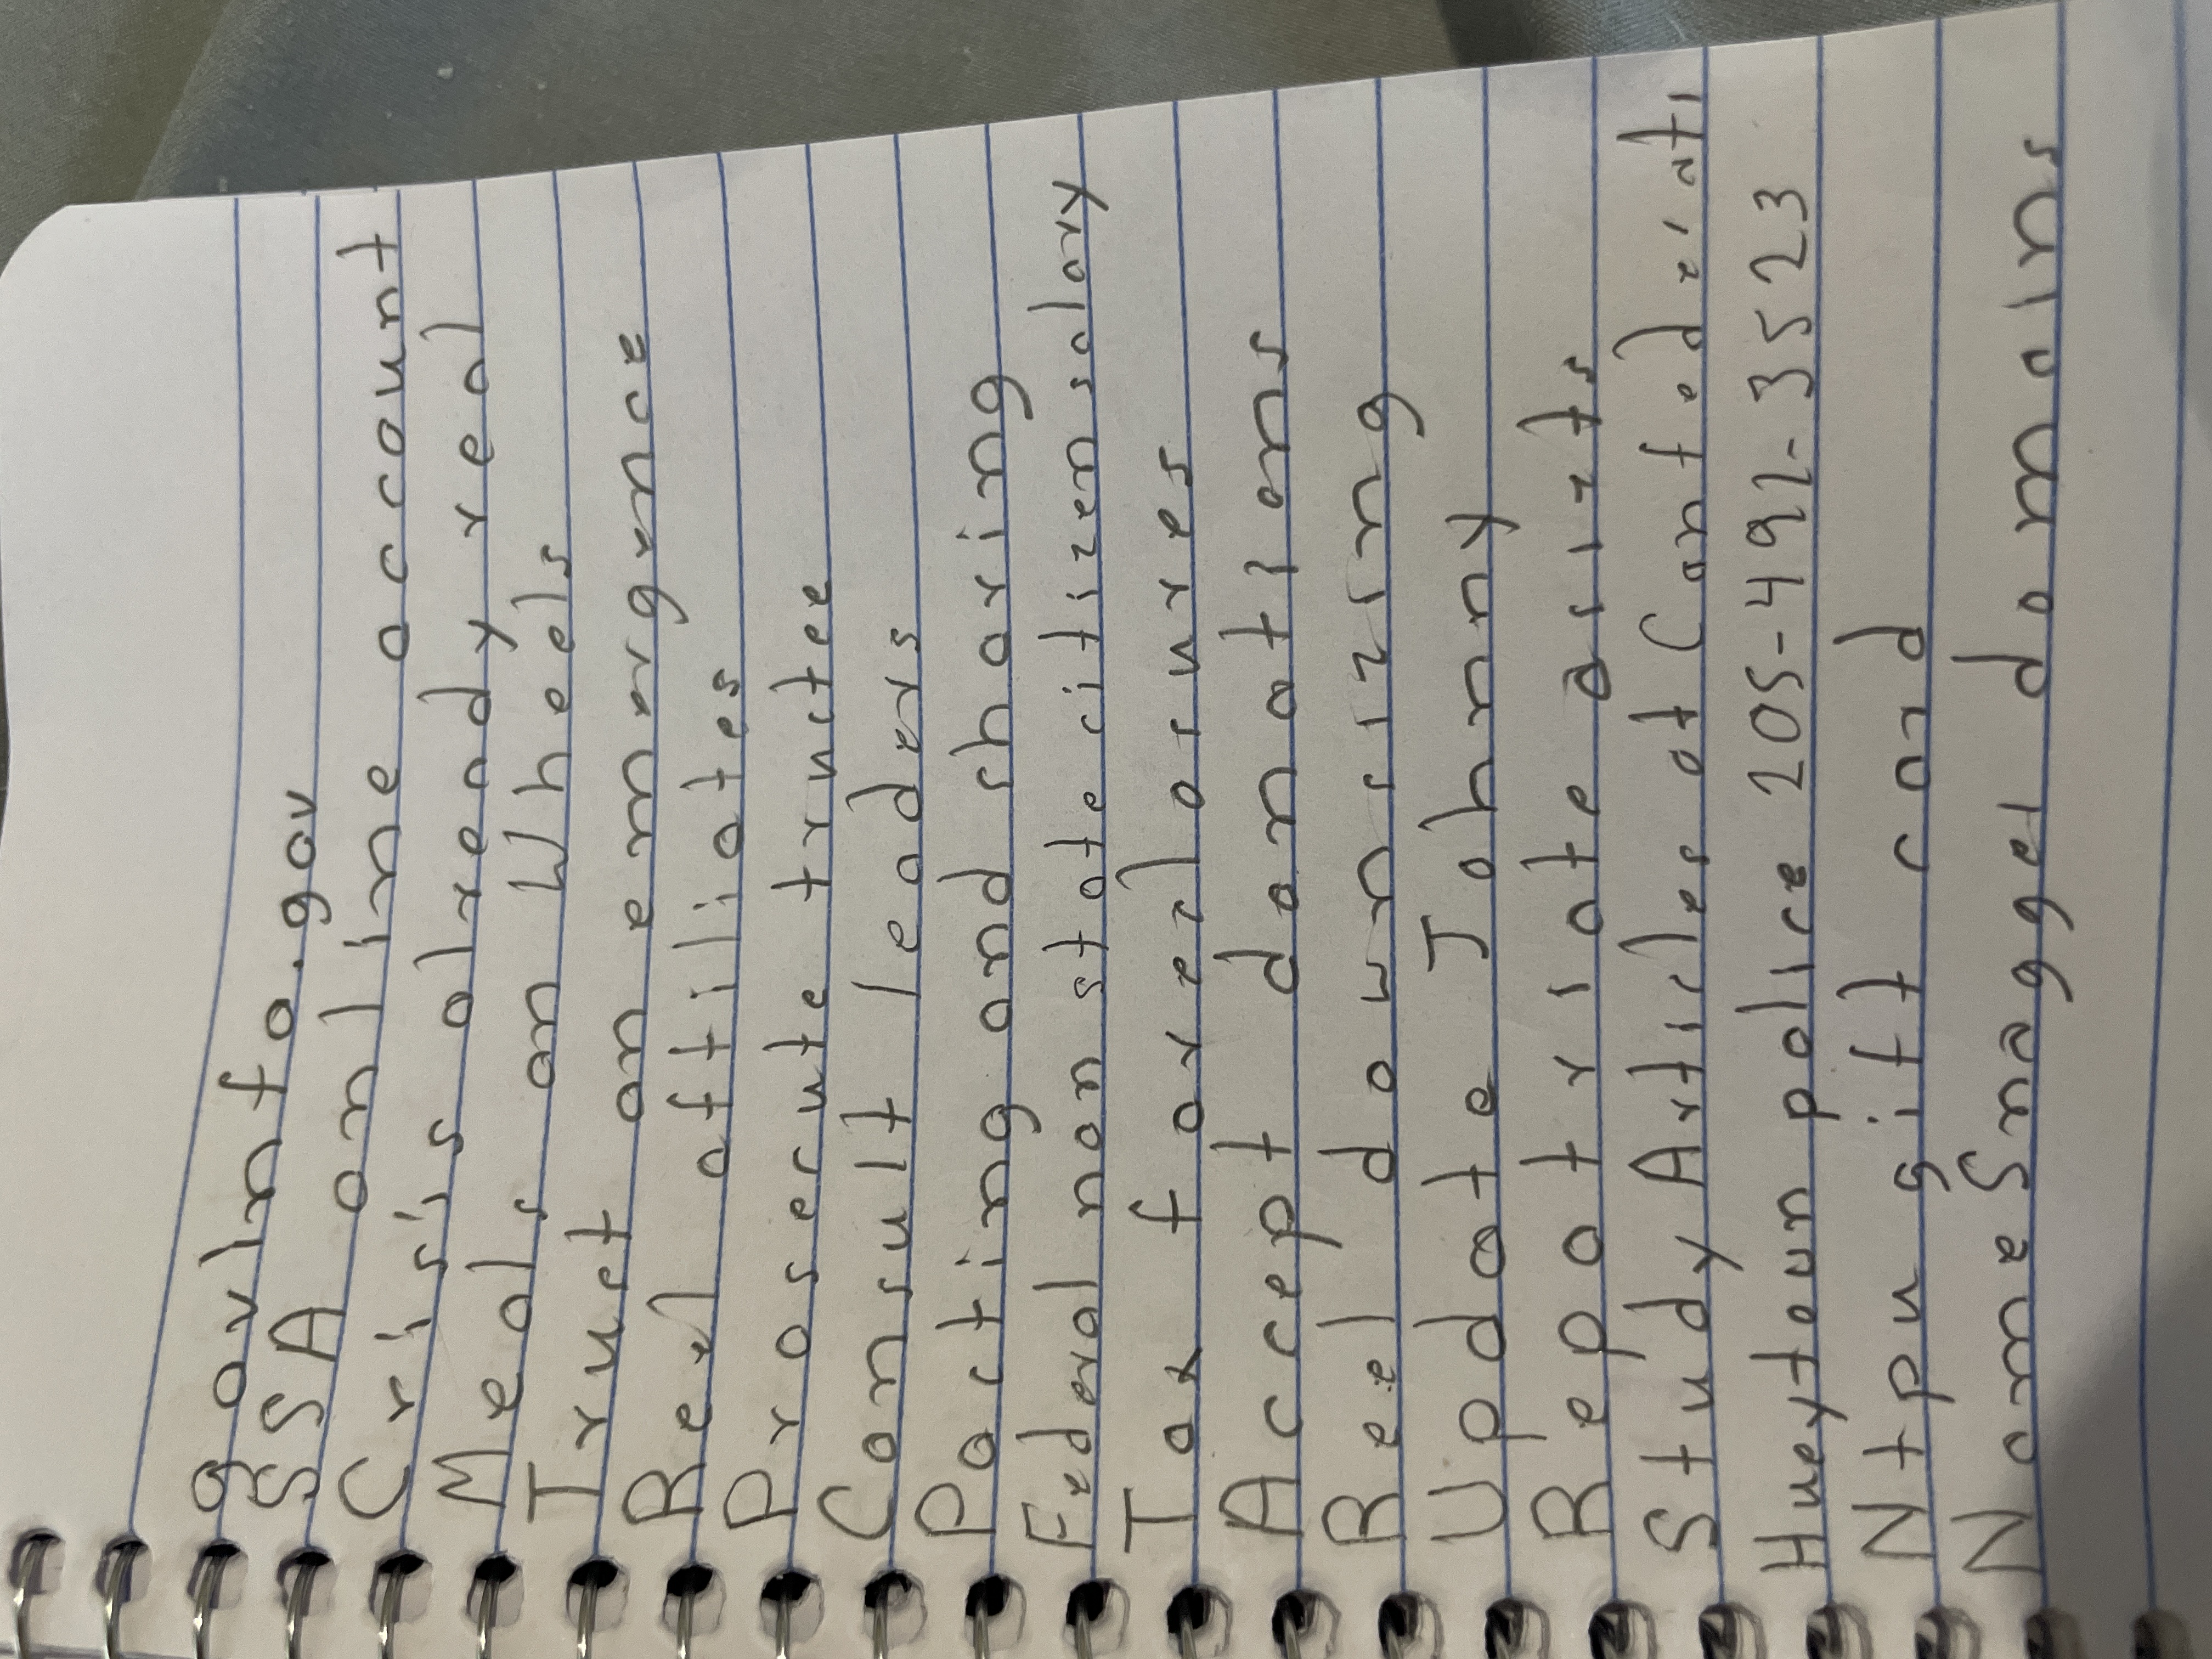 govinfo.gov
SSA online account
Crisis already real
Meals on Wheels
Trust on emergence
Reel affiliates
Prosecute trustee
Consult leaders
Pacting and sharing
Federal nou state citizen salary
Tax forezlosures
Accept donations
Reel downsizing
Update Johnny
Repatriate assizts
Study Articles of Confederati
Hueytown police 205-491-3523
Ntpu gift card
Name Snagel domains